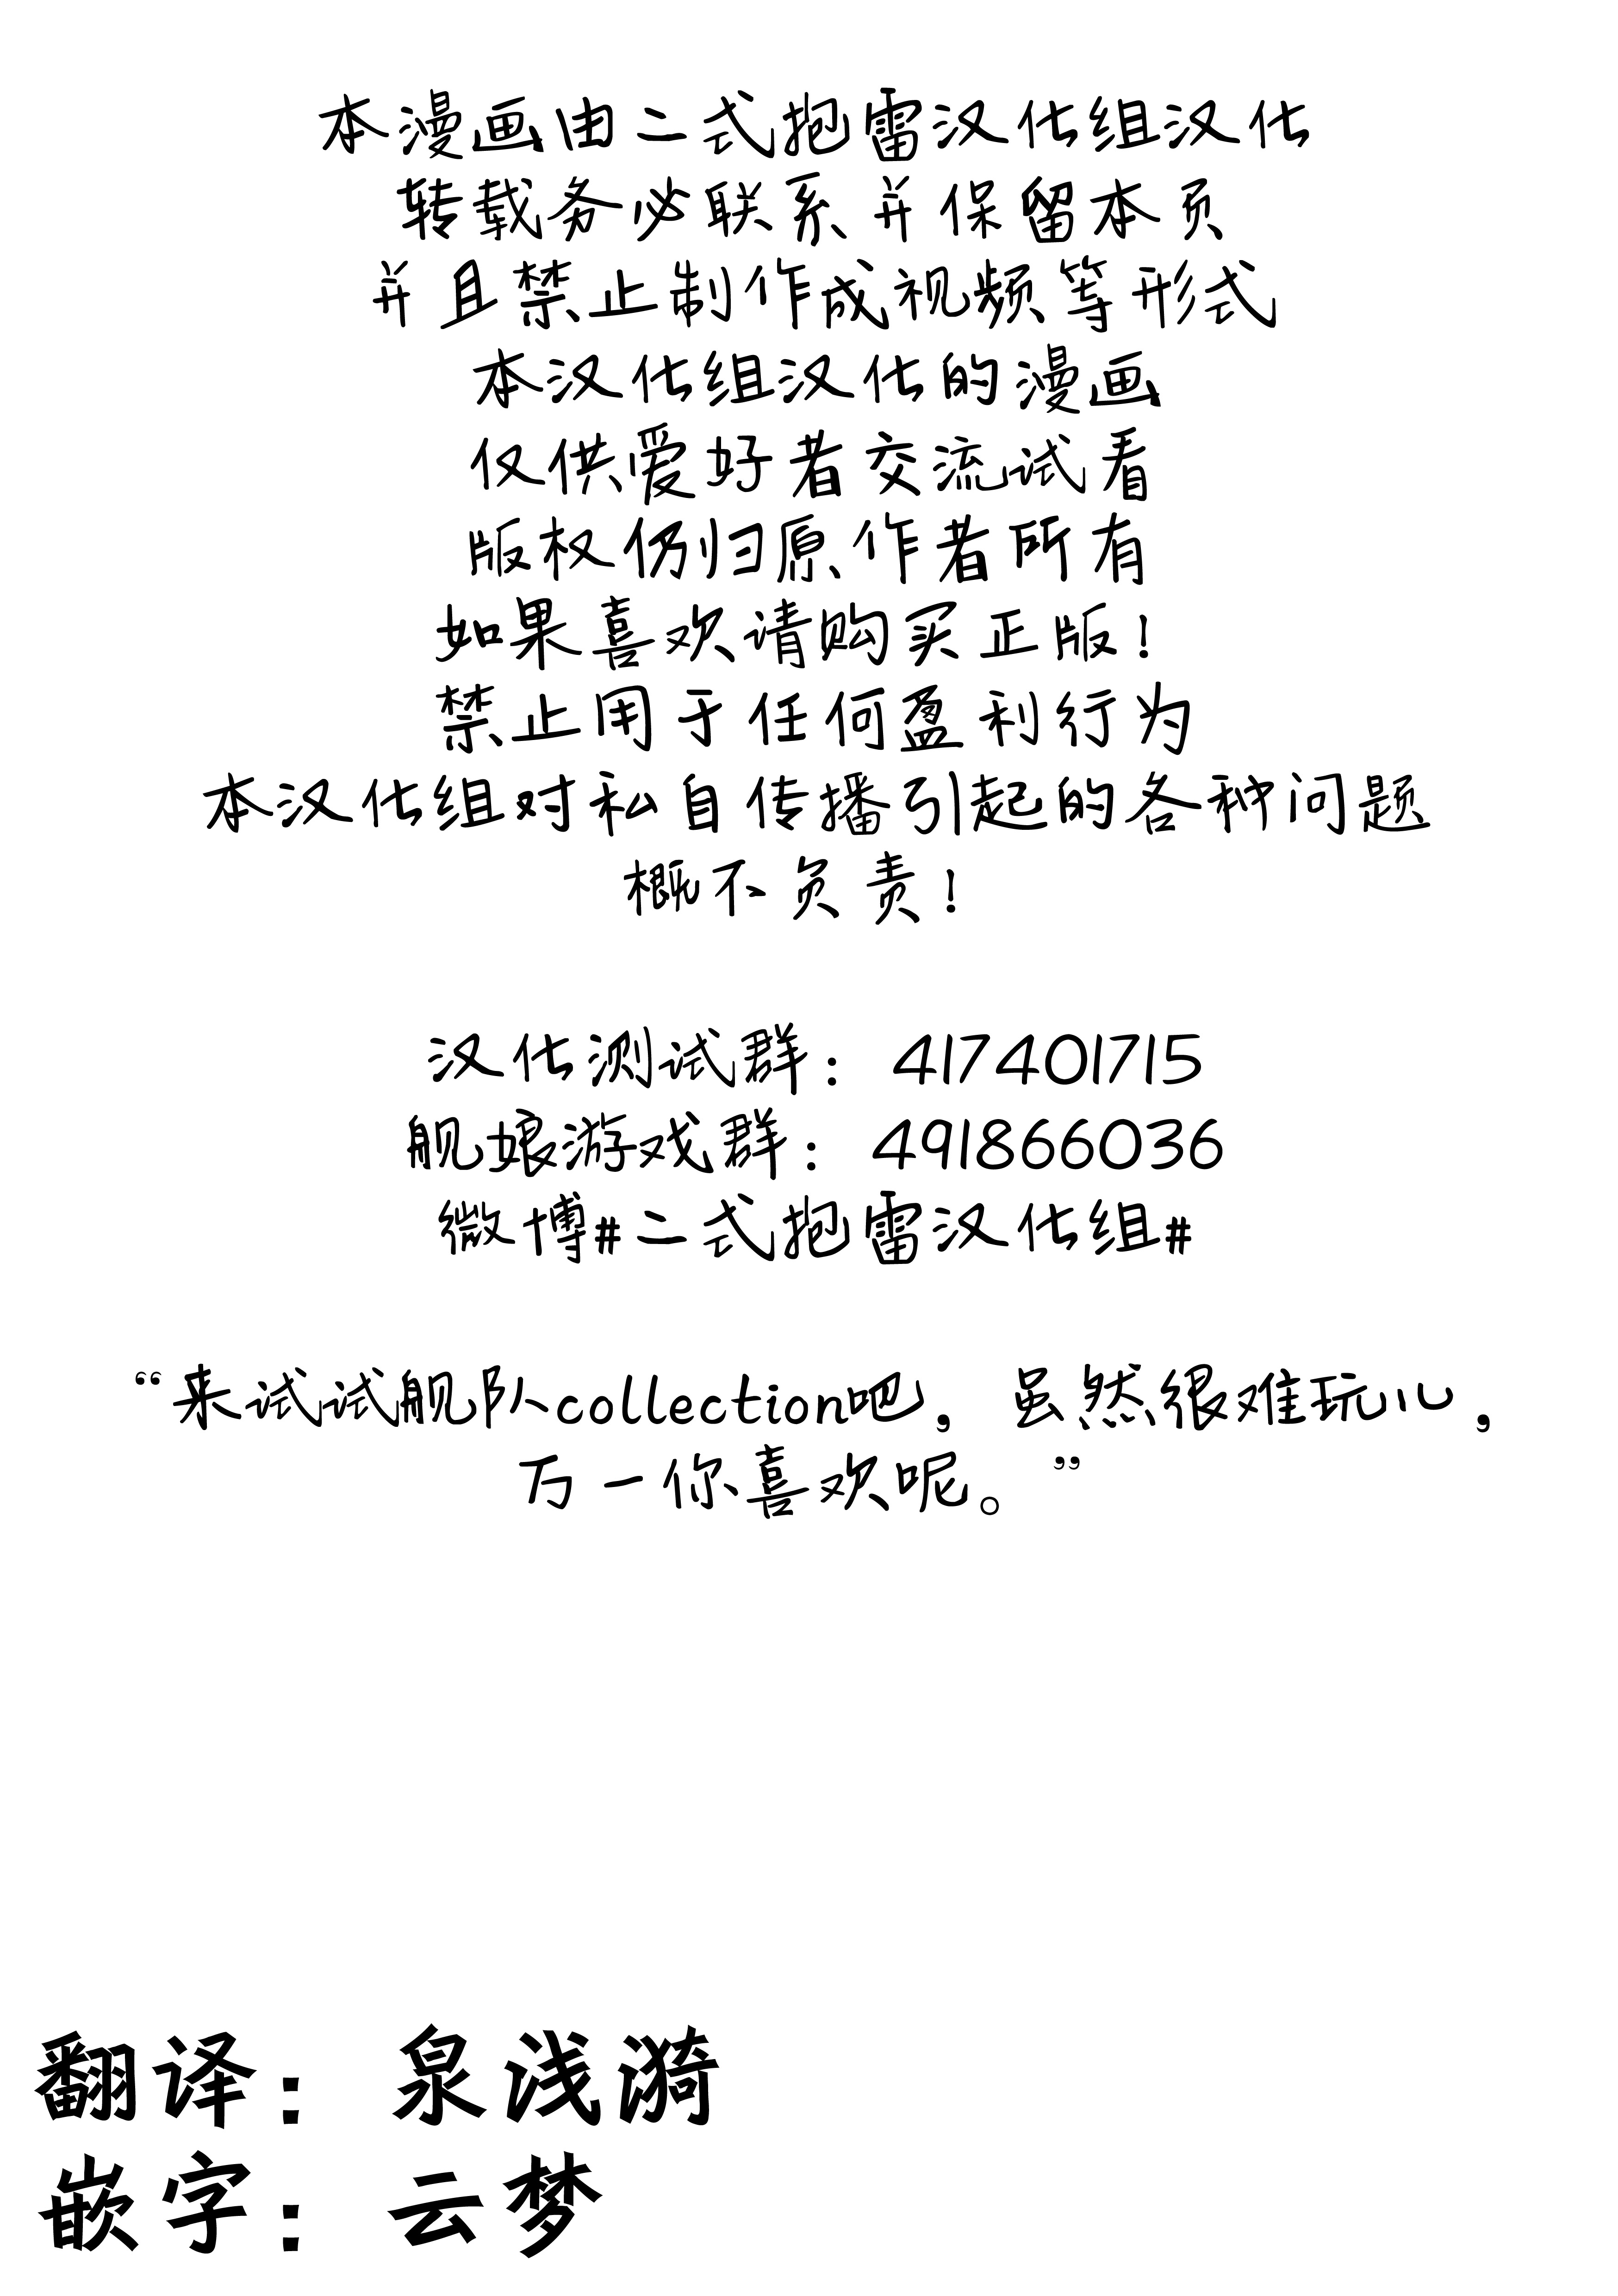 本漫画由二式抱雷汉化组汉化
转载务必联系并保留本页
并且禁止制作成视频等形式
本汉化组汉化的漫画
仅供爱好者交流试看
版权仍归原作者所有
如果喜欢请购买正版！
禁止用于任何盈利行为
本汉化组对私自传播引起的各种问题
概不负责！
汉化测试群：417401715
舰娘游戏群：491866036
微博#二式抱雷汉化组#
“来试试舰队collection吧，虽然很难玩儿，
万一你喜欢呢。”
翻译：泉浅漪
嵌字：云梦